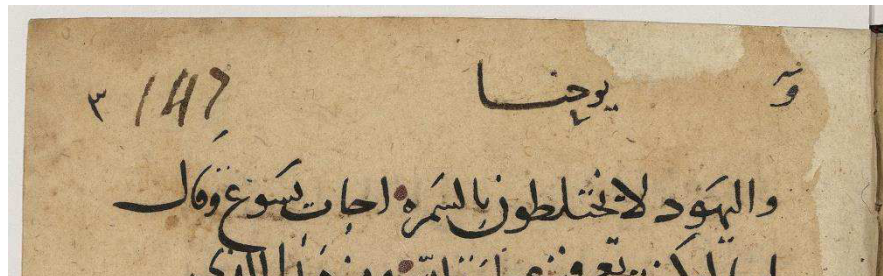 و يوحنا 147 ٣
واليهود لا يختلطون بالسمره اجاب يسوع وقال